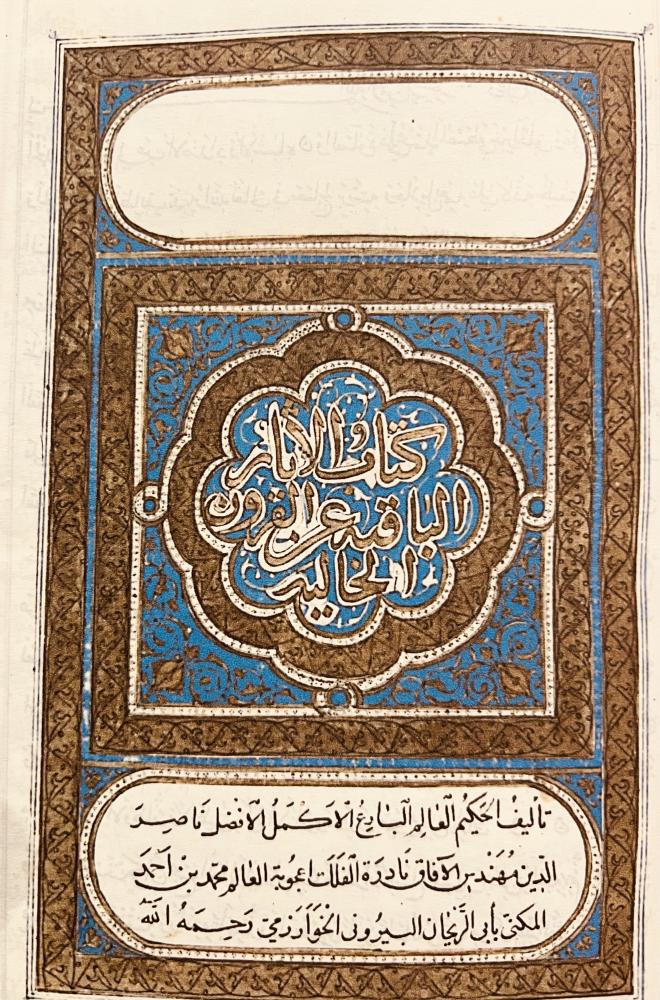 كتاب الآثار
الباقية عن القرون
الخالية
تأليف الحكيم العالم البارع الاكمل الافضل ناصر
الدين مهندس الآفاق نادرة الفلك اعجوبة العالم محمد بن احمد
المكنى بأبى الريحان البيرونى الخوارزمى رحمه الله